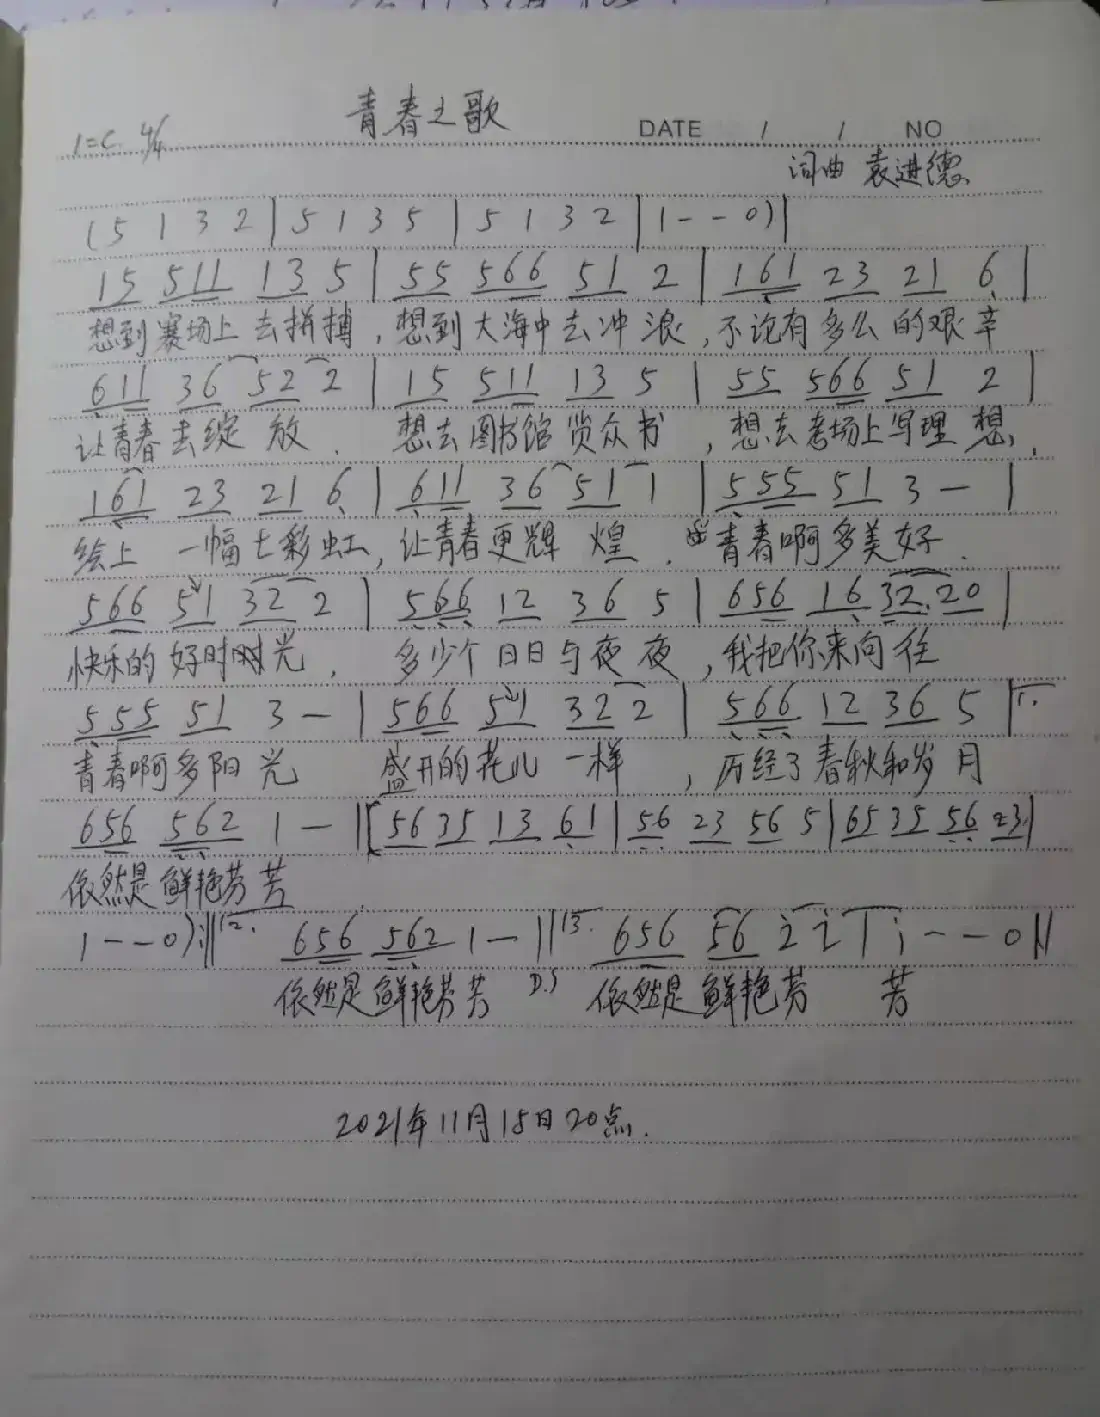 青春之歌
1=C 4/4
DATE / / NO
词曲 袁进德
(5 1 3 2 | 5 1 3 5 | 5 1 3 2 | 1 - - 0) |
15 511 13 5 | 55 566 51 2 | 161 23 21 6 |
想到赛场上去拼搏，想到大海中去冲浪，不论有多么的艰辛
611 36 52 2 | 15 511 13 5 | 55 566 51 2 |
让青春去绽放．想去图书馆赏众书，想去考场上写理想，
161 23 21 6 | 611 36 51 1 | 555 51 3 - |
绘上一幅七彩虹，让青春更辉煌．青春啊多美好．
566 51 32 2 | 566 12 36 5 | 656 16 32.20 |
快乐的好时时光．多少个日日与夜夜，我把你来向往
555 51 3 - | 566 51 32 2 | 566 12 36 5 | 1.
青春啊多阳光 盛开的花儿一样，历经了春秋和岁月
656 562 1 - | [56 35 13 61 | 56 23 56 5 | 65 35 56 23 |
依然是鲜艳芬芳
1 - - 0):‖ 2. 656 562 1 - ‖ 3. 656 56 2̇ 2̇ | 1̇ - - 0 ‖
依然是鲜艳芬芳 D.S 依然是鲜艳芬 芳
2021年11月15日20点.